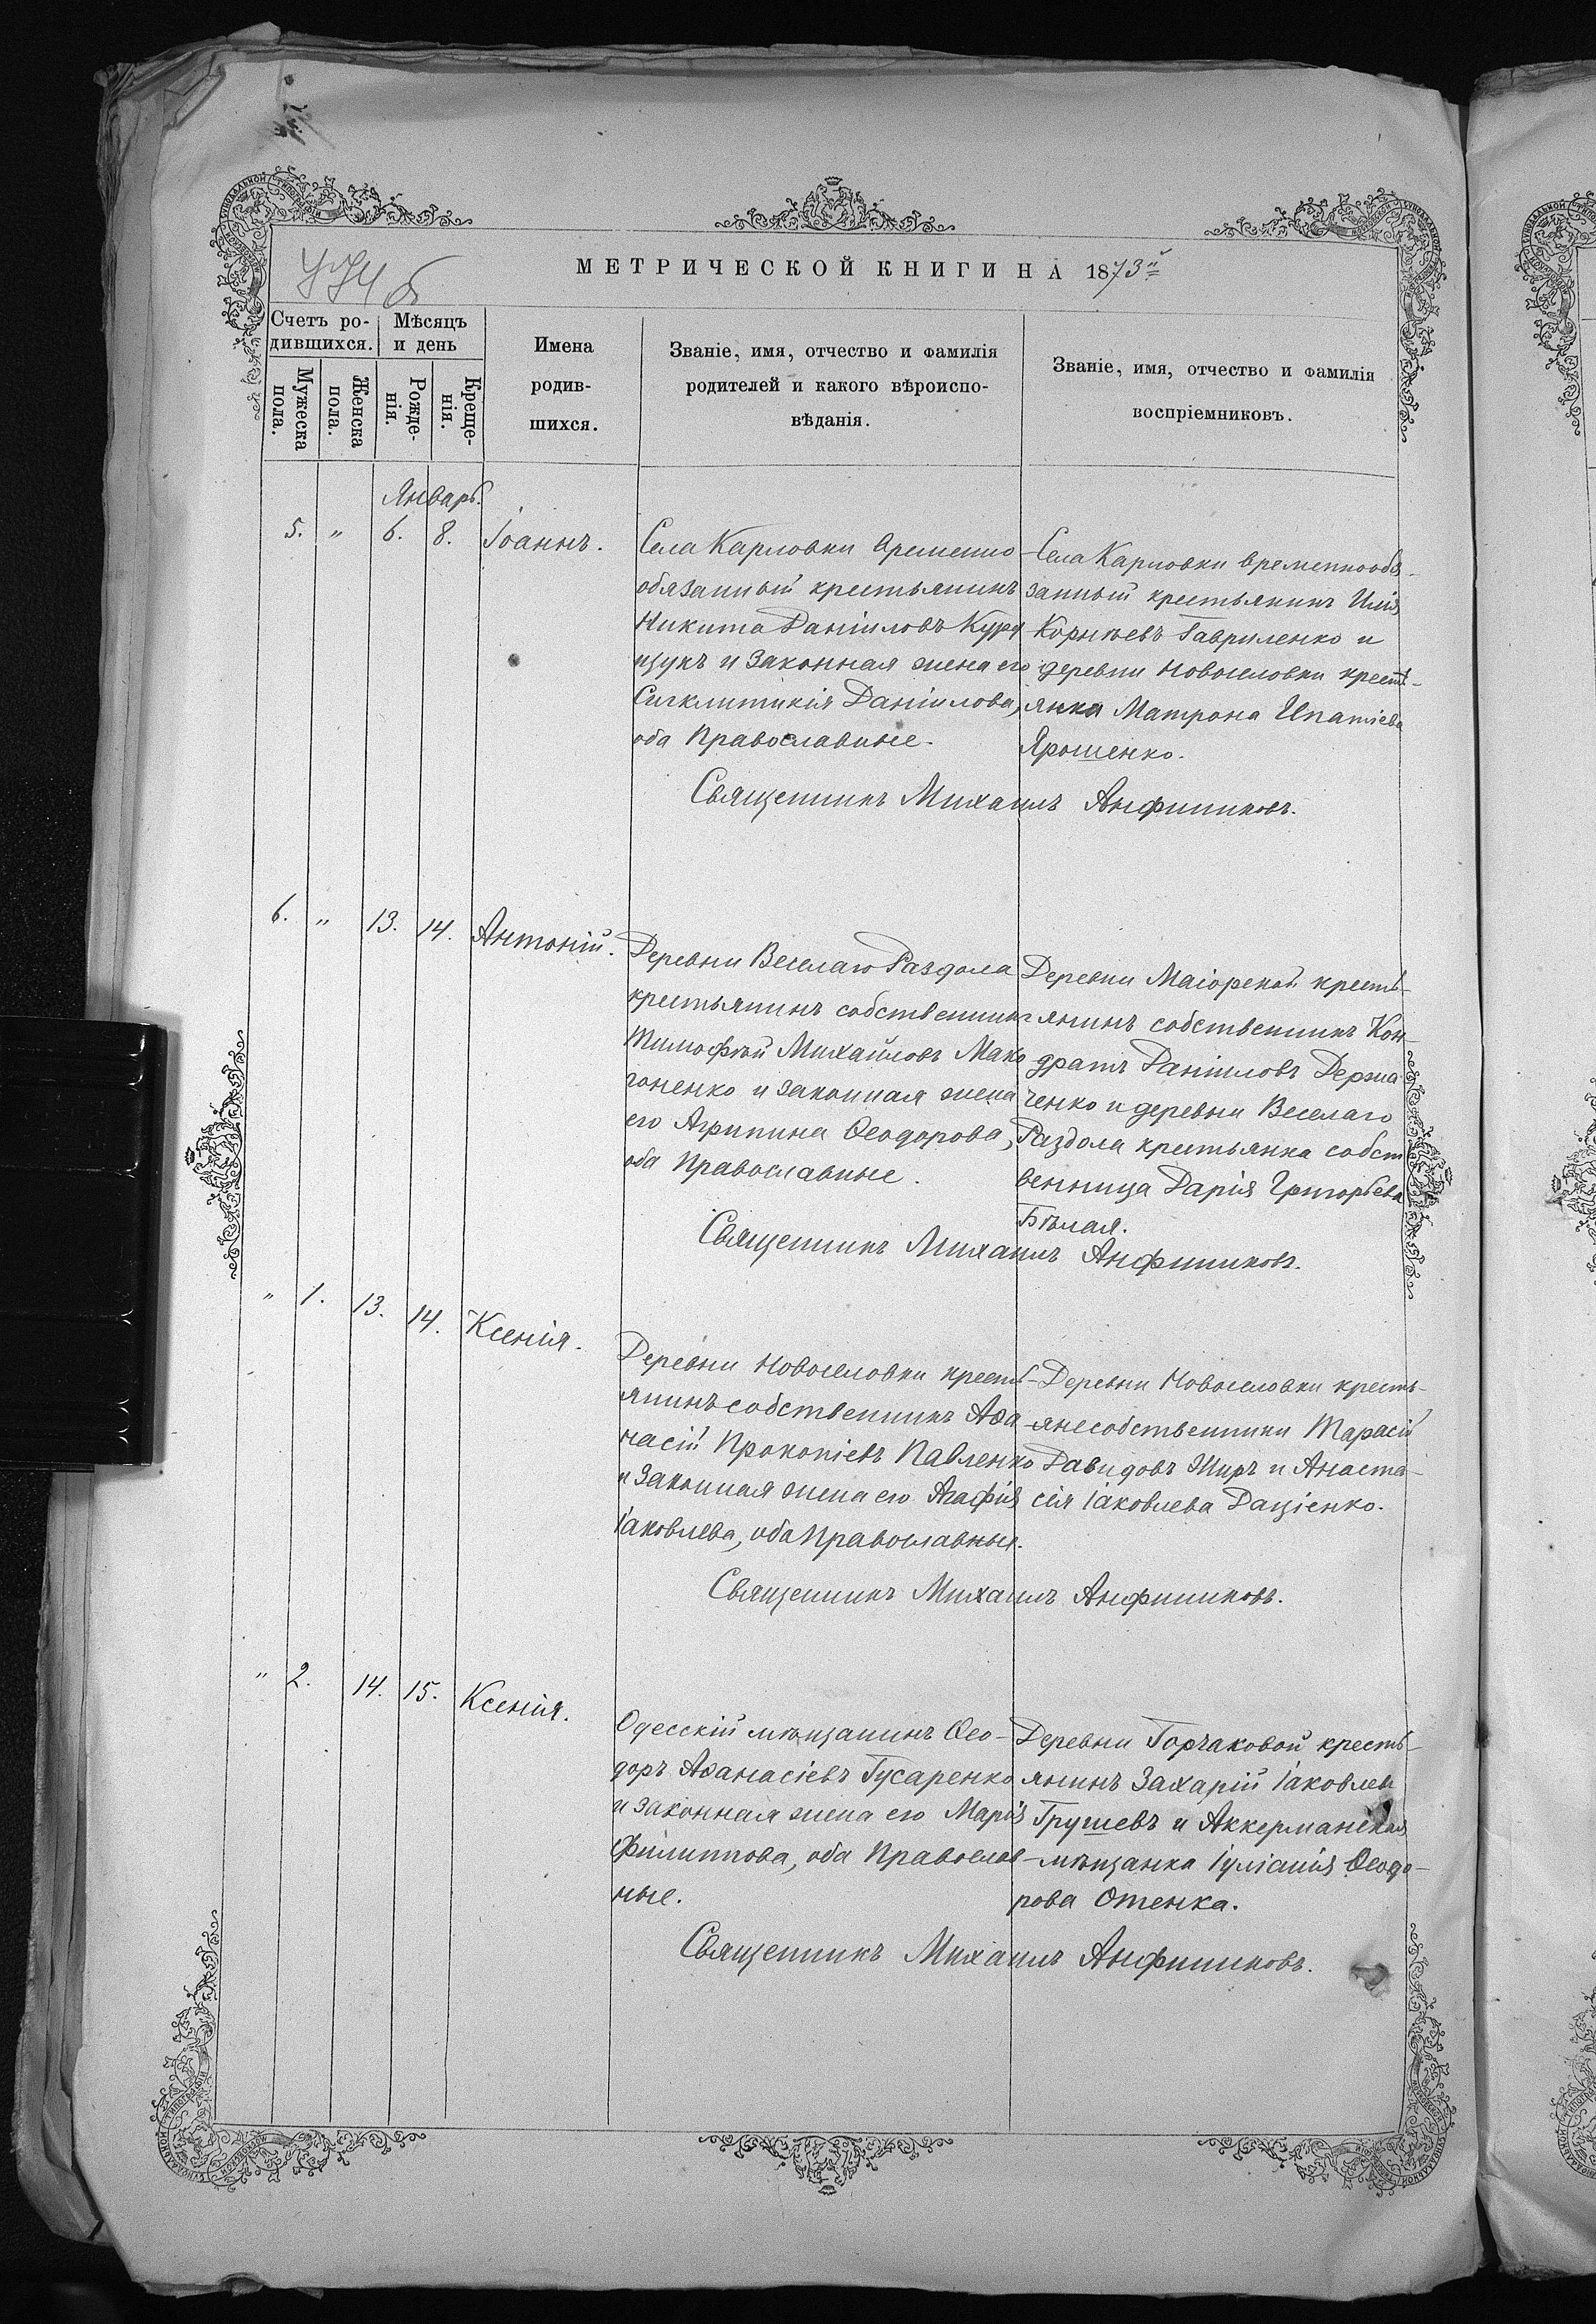 МЕТРИЧЕСКОЙ КНИГИ НА 1873й
Счетъ ро-
дившихся.
Мѣсяцъ
и день
Мужеска
пола.
Женска
пола.
Рожде-
нія.
Креще-
нія.
Имена
родив-
шихся.
Званіе, имя, отчество и фамилія
родителей и какого вѣроиспо-
вѣданія.
Званіе, имя, отчество и фамилія
воспріемниковъ.
Январь.
5. " 6. 8. Іоаннъ.
Села Карловки временно
обязанный крестьянинъ
Никита Даніиловъ
и законная жена его
Сигклитикія Даніилова,
оба Православные.
Села Карловки временнообя-
занный крестьянинъ Илія
Корнѣевъ Гавриленко и
деревни Новоселовки кресть-
янка Матрона Ипатіева
Ярошенко.
Священникъ Михаилъ Анфиниковъ.
6. " 13. 14. Антоній.
Деревни Веселаго Раздола
крестьянинъ собственникъ
Тимофѣй Михайловъ Мако
гоненко и законная жена
его Агрипина Ѳеодорова,
оба Православные.
Деревни Маіорской кресть-
янинъ собственникъ Кон-
дратъ Даніиловъ Держа
ченко и деревни Веселаго
Раздола крестьянка собст
венница Дарія Григорьева
Бѣлая.
Священникъ Михаилъ Анфиниковъ.
" 1. 13. 14. Ксенія.
Деревни Новоселовки кресть-
янинъ собственникъ Аѳа
насій Прокопіевъ Павленко
и законная жена его Агафія
Іаковлева, оба Православные.
Деревни Новоселовки кресть-
яне собственники Тарасій
Давидовъ Жиръ и Анаста-
сія Іаковлева Даціенко.
Священникъ Михаилъ Анфиниковъ.
" 2. 14. 15. Ксенія.
Одесскій мѣщанинъ Ѳео-
доръ Аѳанасіевъ Гусаренко
и законная жена его Марія
Филиппова, оба Православ-
ные.
Деревни Горчаковой кресть-
янинъ Захарій Іаковлевъ
Грушевъ и Аккерманская
мѣщанка Іуліанія Ѳеодо-
рова Отенка.
Священникъ Михаилъ Анфиниковъ.